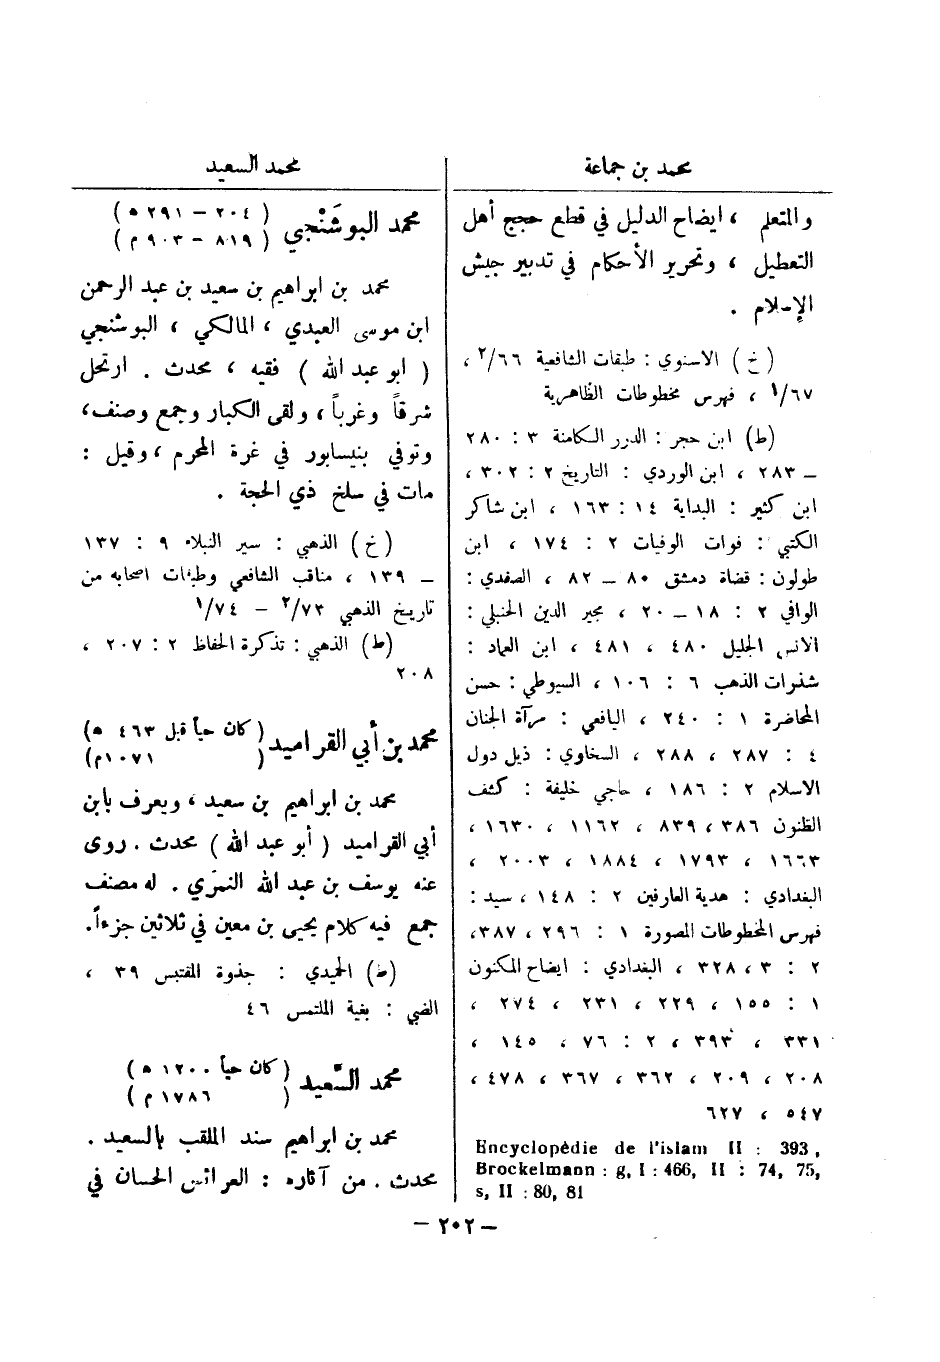 محمد بن جماعة
والمتعلم ، ايضاح الدليل في قطع حجج أهل
التعطيل ، وتحرير الأحكام في تدبير جيش
الإسلام .
(خ) الاسنوي : طبقات الشافعية ٦٦/٢ ،
٦٧/١ ، فهرس مخطوطات الظاهرية
(ط) ابن حجر : الدرر الكامنة ٣ : ٢٨٠
ــ ٢٨٣ ، ابن الوردي : التاريخ ٢ : ٣٠٢ ،
ابن كثير : البداية ١٤ : ١٦٣ ، ابن شاكر
الكتبي : فوات الوفيات ٢ : ١٧٤ ، ابن
طولون : قضاة دمشق ٨٠ ــ ٨٢ ، الصفدي :
الوافي ٢ : ١٨ ــ ٢٠ ، مجير الدين الحنبلي :
الانس الجليل ٤٨٠ ، ٤٨١ ، ابن العماد :
شذرات الذهب ٦ : ١٠٦ ، السيوطي : حسن
المحاضرة ١ : ٢٤٠ ، اليافعي : مرآة الجنان
٤ : ٢٨٧ ، ٢٨٨ ، السخاوي : ذيل دول
الاسلام ٢ : ١٨٦ ، حاجي خليفة : كشف
الظنون ٣٨٦ ، ٨٣٩ ، ١١٦٢ ، ١٦٣٠ ،
١٦٦٣ ، ١٧٩٣ ، ١٨٨٤ ، ٢٠٠٣ ،
البغدادي : هدية العارفين ٢ : ١٤٨ ، سيد :
فهرس المخطوطات المصورة ١ : ٢٩٦ ، ٣٨٧ ،
٢ : ٣ ، ٣٢٨ ، البغدادي : ايضاح المكنون
١ : ١٥٥ ، ٢٢٩ ، ٢٣١ ، ٢٧٤ ،
٣٣١ ، ٣٩٣ ، ٢ : ٧٦ ، ١٤٥ ،
٢٠٨ ، ٢٠٩ ، ٣٦٢ ، ٣٦٧ ، ٤٧٨ ،
٥٤٧ ، ٦٢٧
Encyclopédie de l'islam II : 393,
Brockelmann : g, I : 466, II : 74, 75,
s, II : 80, 81
محمد السعيد
محمد البوشَنْجي ( ٢٠٤ – ٢٩١ ه )
( ٨١٩ – ٩٠٣ م )
محمد بن ابراهيم بن سعيد بن عبد الرحمن
ابن موسى العبدي ، المالكي ، البوشنجي
( ابو عبد الله ) فقيه ، محدث . ارتحل
شرقاً وغرباً ، ولقى الكبار وجمع وصنف ،
وتوفي بنيسابور في غرة المحرم ، وقيل :
مات في سلخ ذي الحجة .
(خ) الذهبي : سير النبلاء ٩ : ١٣٧
ــ ١٣٩ ، مناقب الشافعي وطبقات اصحابه من
تاريخ الذهبي ٧٣/٢ – ٧٤/١
(ط) الذهبي : تذكرة الحفاظ ٢ : ٢٠٧ ،
٢٠٨
محمد بن أبي القراميد ( كان حياً قبل ٤٦٣ ه )
( ١٠٧١م )
محمد بن ابراهيم بن سعيد ، ويعرف بابن
أبي القراميد ( أبو عبد الله ) محدث . روى
عنه يوسف بن عبد الله النمري . له مصنف
جمع فيه كلام يحيى بن معين في ثلاثين جزءاً .
(ط) الحميدي : جذوة المقتبس ٣٩ ،
الضبي : بغية الملتمس ٤٦
محمد السَّعيد ( كان حياً ١٢٠٠ ه )
( ١٧٨٦ م )
محمد بن ابراهيم سند الملقب بالسعيد .
محدث . من آثاره : العرائس الحسان في
– ٢٠٢ –